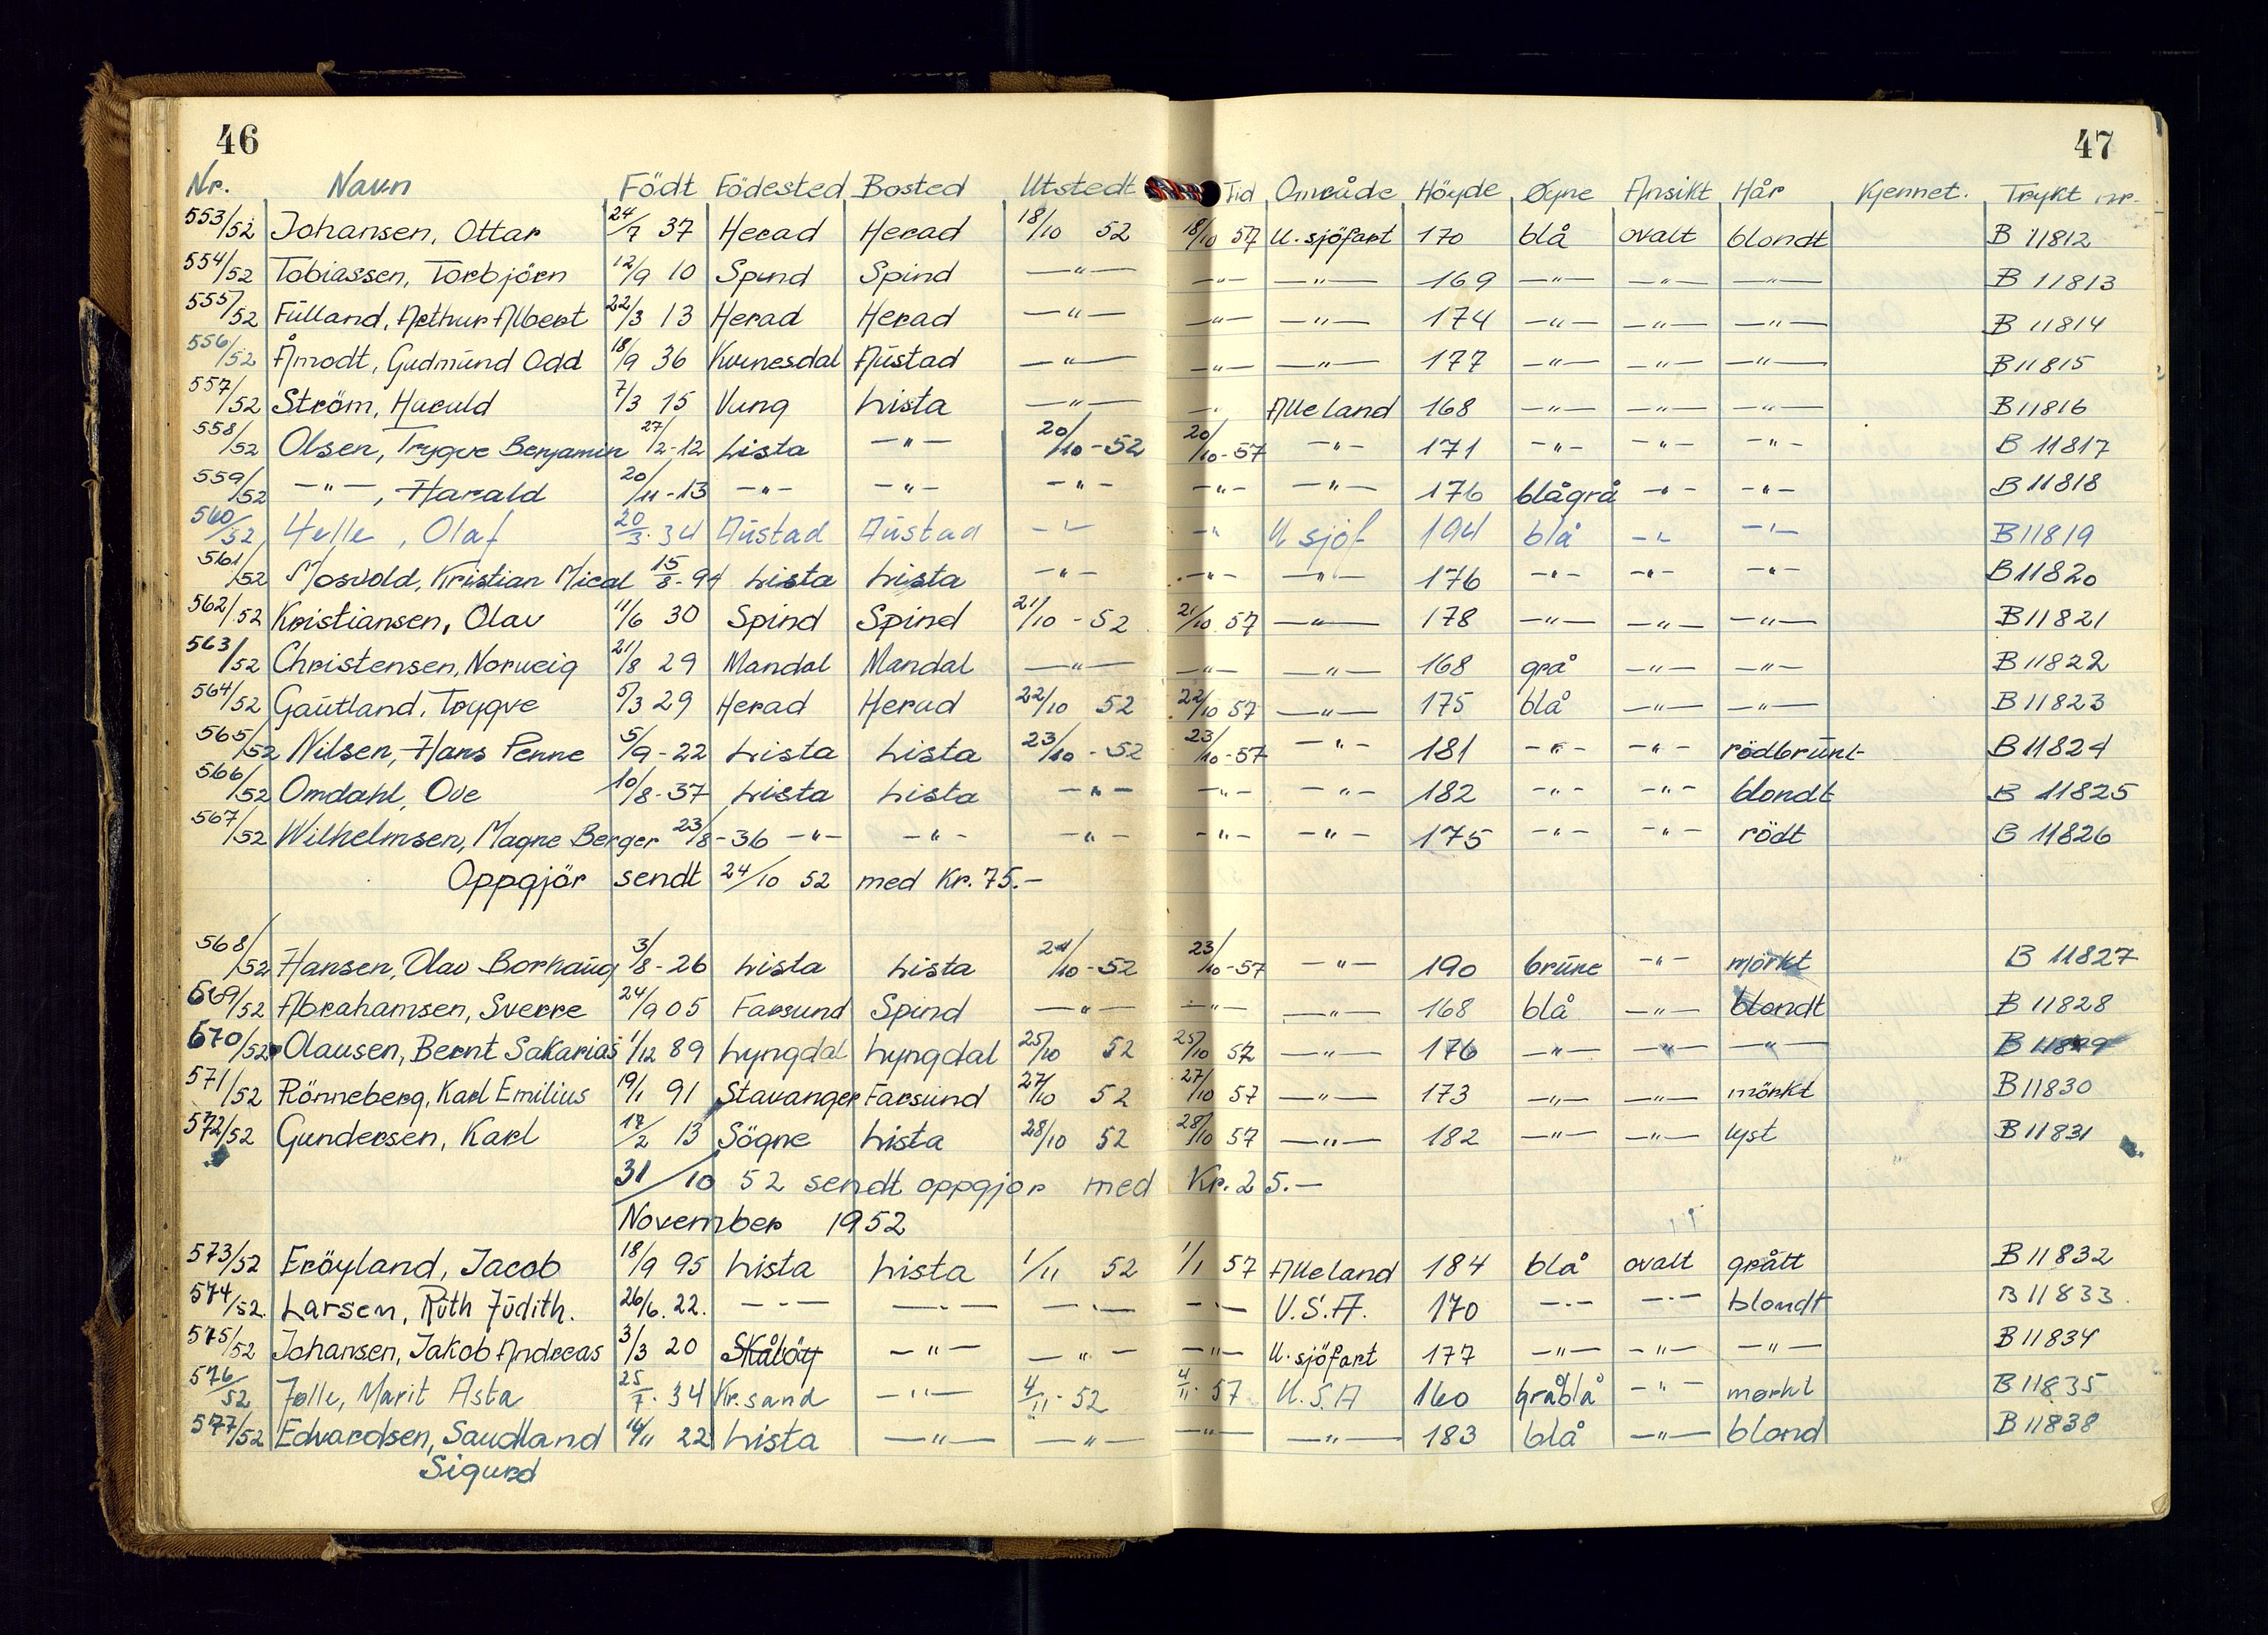 46
47
Nr. Navn Födt Födested Bosted Utstedt Tid Område Höyde Øyne Ansikt Hår Kjennet. Trykt nr.
553/52 Johansen, Ottar 24/7 37 Herad Herad 18/10 52 18/10 57 U. sjöfart 170 blå ovalt blondt B 11812
554/52 Tobiassen, Torbjörn 12/9 10 Spind Spind —"— —"— —"— 169 —"— —"— —"— B 11813
555/52 Fulland, Arthur Albert 22/3 13 Herad Herad —"— —"— —"— 174 —"— —"— —"— B 11814
556/52 Åmodt, Gudmund Odd 18/9 36 Kvinesdal Austad —"— —"— —"— 177 —"— —"— —"— B 11815
557/52 Ström, Harald 7/3 15 Vang Lista —"— —"— Alle land 168 —"— —"— —"— B 11816
558/52 Olsen, Trygve Benjamin 27/2-12 Lista —"— 20/10-52 20/10-57 —"— 171 —"— —"— —"— B 11817
559/52 —"—, Harald 20/11-13 —"— —"— —"— —"— —"— 176 blågrå —"— —"— B 11818
560/52 Helle, Olaf 20/3.34 Austad Austad —"— —"— U sjöf 194 blå —"— —"— B 11819
561/52 Mosvold, Kristian Mical 15/8-94 Lista Lista —"— —"— —"— 176 —"— —"— —"— B 11820
562/52 Kristiansen, Olav 11/6 30 Spind Spind 21/10-52 21/10 57 —"— 178 —"— —"— —"— B 11821
563/52 Christensen, Norveig 21/8 29 Mandal Mandal —"— —"— —"— 168 grå —"— —"— B 11822
564/52 Gautland, Trygve 5/3 29 Herad Herad 22/10 52 22/10 57 —"— 175 blå —"— —"— B 11823
565/52 Nilsen, Hans Penne 5/9-22 Lista Lista 23/10-52 23/10-57 —"— 181 —"— —"— rödbrunt B 11824
566/52 Omdahl, Ove 10/8-37 Lista Lista —"— —"— —"— 182 —"— —"— blondt B 11825
567/52 Wilhelmsen, Magne Berger 23/8-36 —"— —"— —"— —"— —"— 175 —"— —"— rödt B 11826
Oppgjör sendt 24/10 52 med Kr. 75.—
568/52 Hansen, Olav Borhaug 3/8-26 Lista Lista 24/10-52 23/10-57 —"— 190 brune —"— mörkt B 11827
569/52 Abrahamsen, Sverre 24/9 05 Farsund Spind —"— —"— —"— 168 blå —"— blondt B 11828
570/52 Olausen, Bernt Sakarias 1/12 89 Lyngdal Lyngdal 25/10 52 25/10 57 —"— 176 —"— —"— —"— B 11829
571/52 Rönneberg, Karl Emilius 19/1 91 Stavanger Farsund 27/10 52 27/10 57 —"— 173 —"— —"— mörkt B 11830
572/52 Gundersen, Karl 17/2 13 Sögne Lista 28/10 52 28/10 57 —"— 182 —"— —"— lyst B 11831
31/10 52 sendt oppgjör med Kr. 25.—
November 1952
573/52 Eröyland, Jacob 18/9 95 Lista Lista 1/11 52 1/1 57 Alle land 184 blå ovalt grått B 11832
574/52 Larsen, Ruth Judith. 26/6.22. —"— —"— —"— —"— U.S.A. 170 —"— —"— blondt B 11833
575/52 Johansen, Jakob Andreas 3/3 20 Skålöy —"— —"— —"— U. sjöfart 177 —"— —"— —"— B 11834
576/52 Jølle, Marit Asta 25/7.34 Kr.sand —"— 4/11.52 4/11.57 U.S.A 160 gråblå —"— mørkt B 11835
577/52 Edvardsen, Saudland 14/11 22 Lista —"— —"— —"— —"— 183 blå —"— blond B 11838
Sigurd